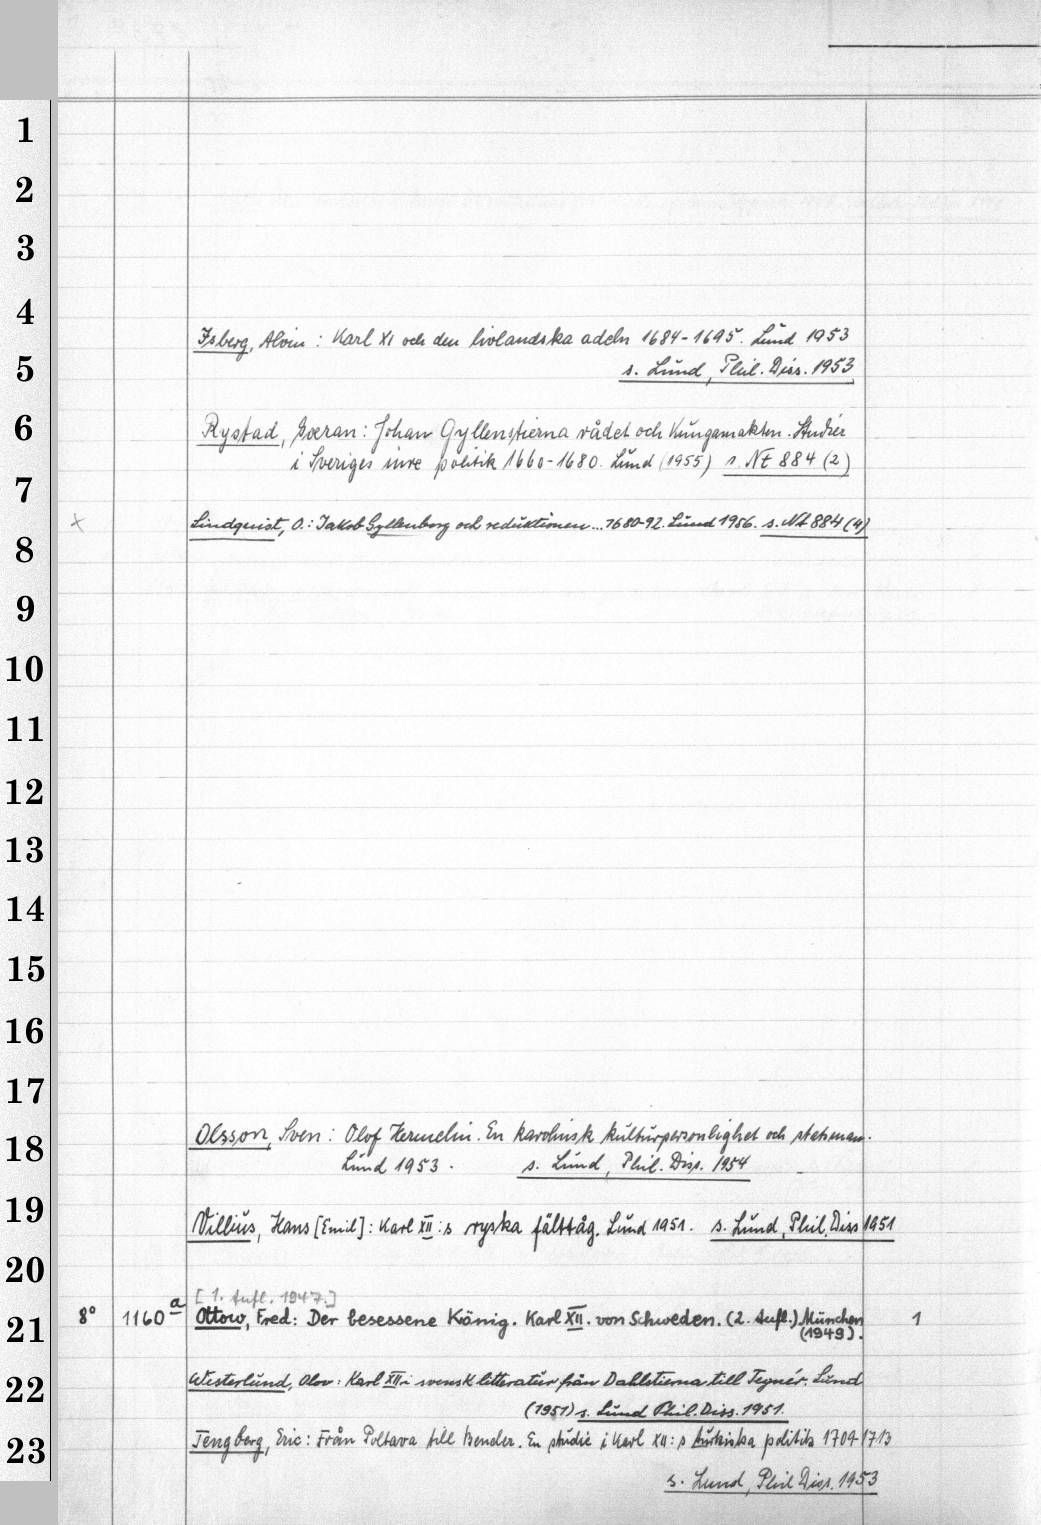 1
2
3
4
Isberg, Alvin: Karl XI och den livländska adeln 1684-1695. Lund 1953
5
s. Lund, Phil. Diss. 1953
6
Rystad, Goeran: Johan Gyllenstierna rådet och Kungamakten. Studier
i Sveriges inre politik 1660-1680. Lund (1955) s. Nt 884 (2)
7
x
Lindquist, O.: Jakob Gyllenborg och reduktionen... 1680-92. Lund 1956. s. Nt 884 (4)
8
9
10
11
12
13
14
15
16
17
18
Olsson, Sven: Olof Hermelin. En karolinsk kulturpersonlighet och statsman.
Lund 1953. s. Lund, Phil. Diss. 1954
19
Villius, Hans [Emil]: Karl XII:s ryska fälttåg. Lund 1951. s. Lund, Phil. Diss 1951
20
[1. Aufl. 1947.]
21
8° 1160a Ottow, Fred: Der besessene König. Karl XII. von Schweden. (2. Aufl.) München 1
(1949).
22
Westerlund, Olov: Karl XII i svensk litteratur från Dahlstierna till Tegnér. Lund
(1951) s. Lund Phil. Diss. 1951.
23
Tengberg, Eric: Från Poltava till Bender. En studie i Karl XII:s turkiska politik 1709-1713
s. Lund, Phil Diss. 1953